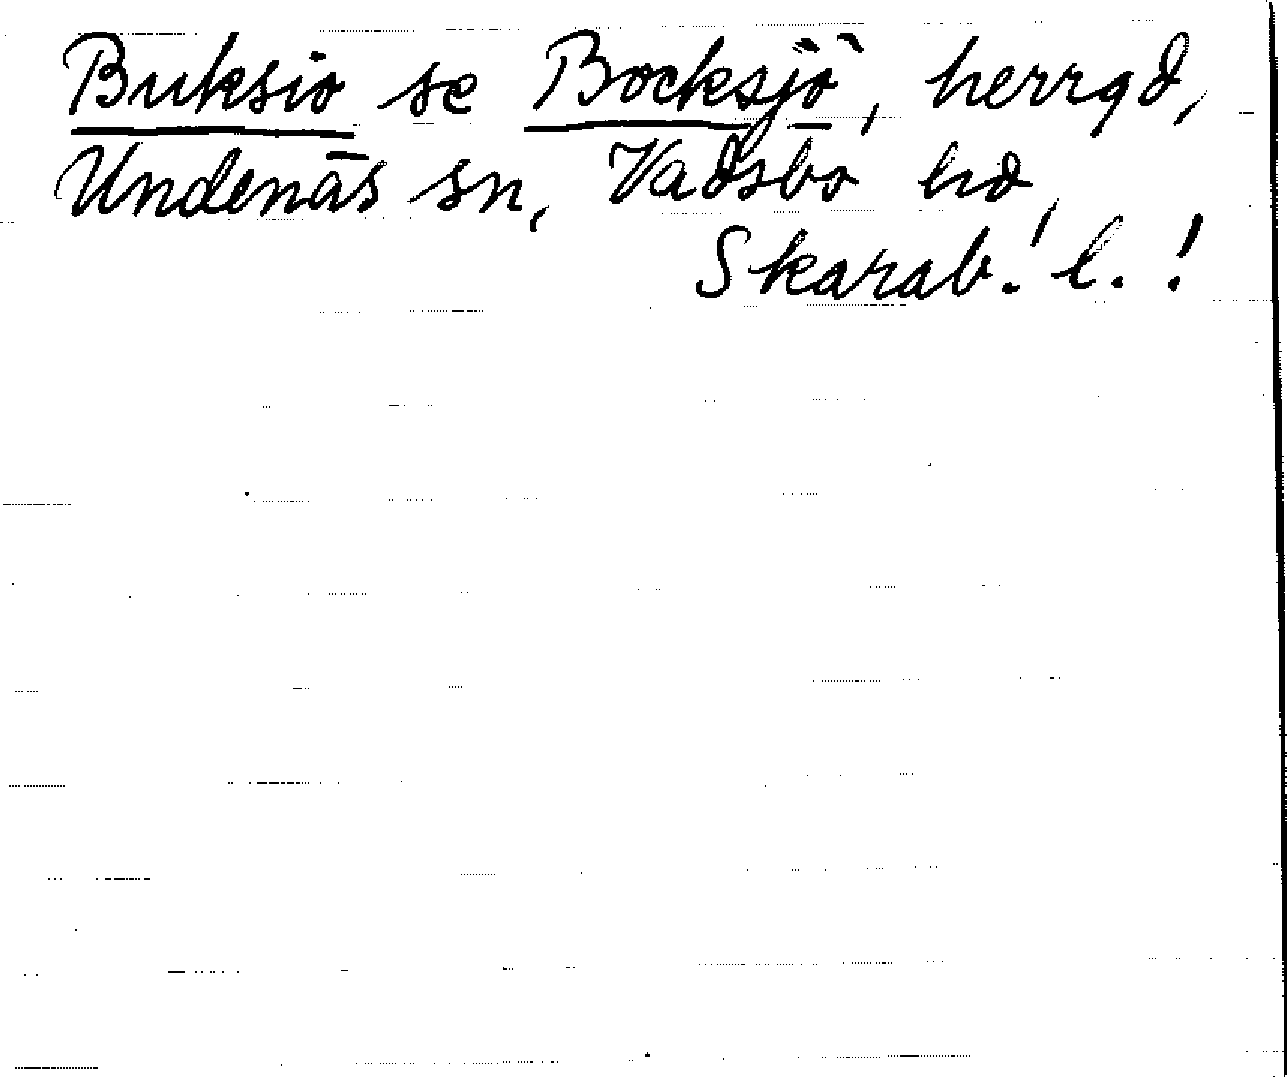 Buksio se Bocksjö, herrgd,
Undenäs sn, Vadsbo hd,
Skarab. l. !